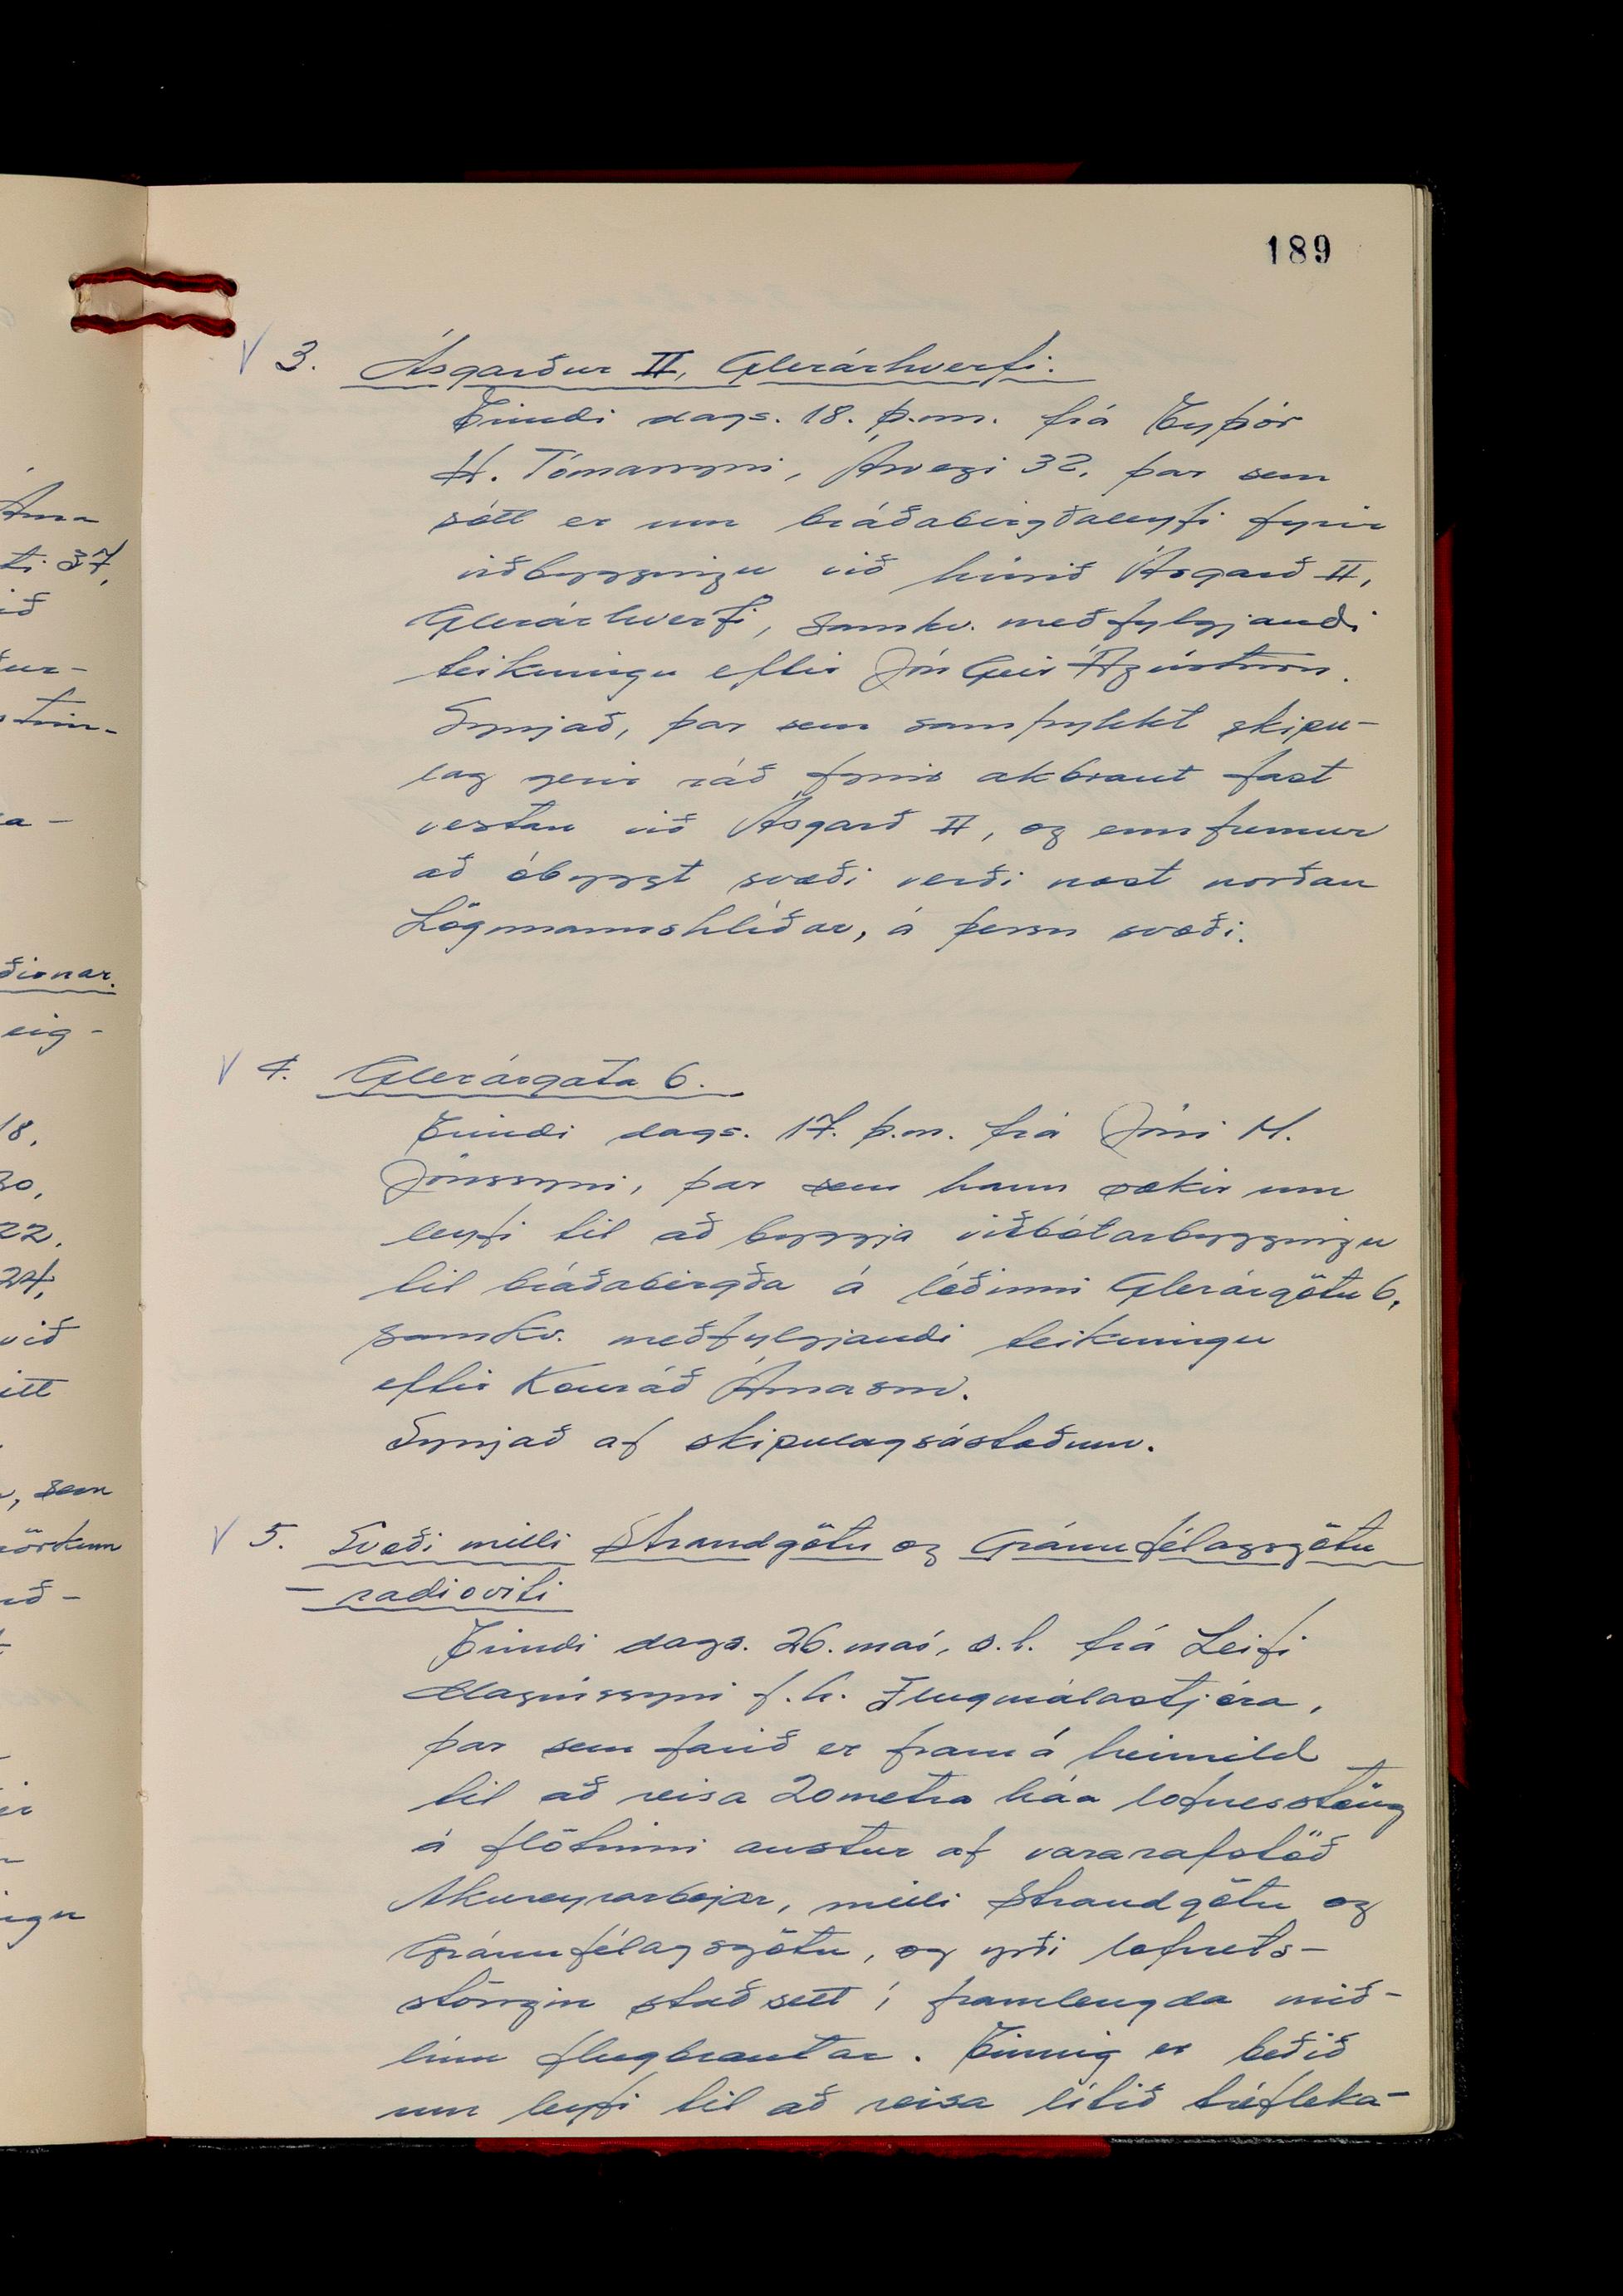 189
3. Ásgarður II, Glerárhverfi.
Erindi dags. 18. þ.m. frá Eyþór
H. Tómassyni, Ásvegi 32, þar sem
sótt er um bráðabirgðaleyfi fyrir
viðbyggingu við húsið Ásgarð II,
Glerárhverfi, samkv. meðfylgjandi
teikningu eftir Jón Geir Ágústsson.
Synjað, þar sem samþykkt skipu-
lag gerir ráð fyrir akbraut fast
vestan við Ásgarð II, og ennfremur
að óbyggt svæði verði næst norðan
Lögmannshlíðar, á þessu svæði.
4. Glerárgata 6.
Erindi dags. 17. þ.m. frá Jóni M.
Jónssyni, þar sem hann sækir um
leyfi til að byggja viðbótarbyggingu
til bráðabirgða á lóðinni Glerárgötu 6,
samkv. meðfylgjandi teikningu
eftir Konráð Árnason.
Synjað af skipulagsástæðum.
5. Svæði milli Strandgötu og Gránufélagsgötu
– radioviti
Erindi dags. 26. maí, s.l. frá Leifi
Magnússyni f.h. Flugmálastjóra,
þar sem farið er fram á heimild
til að reisa 20 metra háa loftnesstöng
á flötinni austur af vararafstöð
Akureyrarbæjar, milli Strandgötu og
Gránufélagsgötu, og yrði loftnets-
stöngin staðsett í framlengda mið-
línu flugbrautar. Einnig er beðið
um leyfi til að reisa lítið tréfleka-